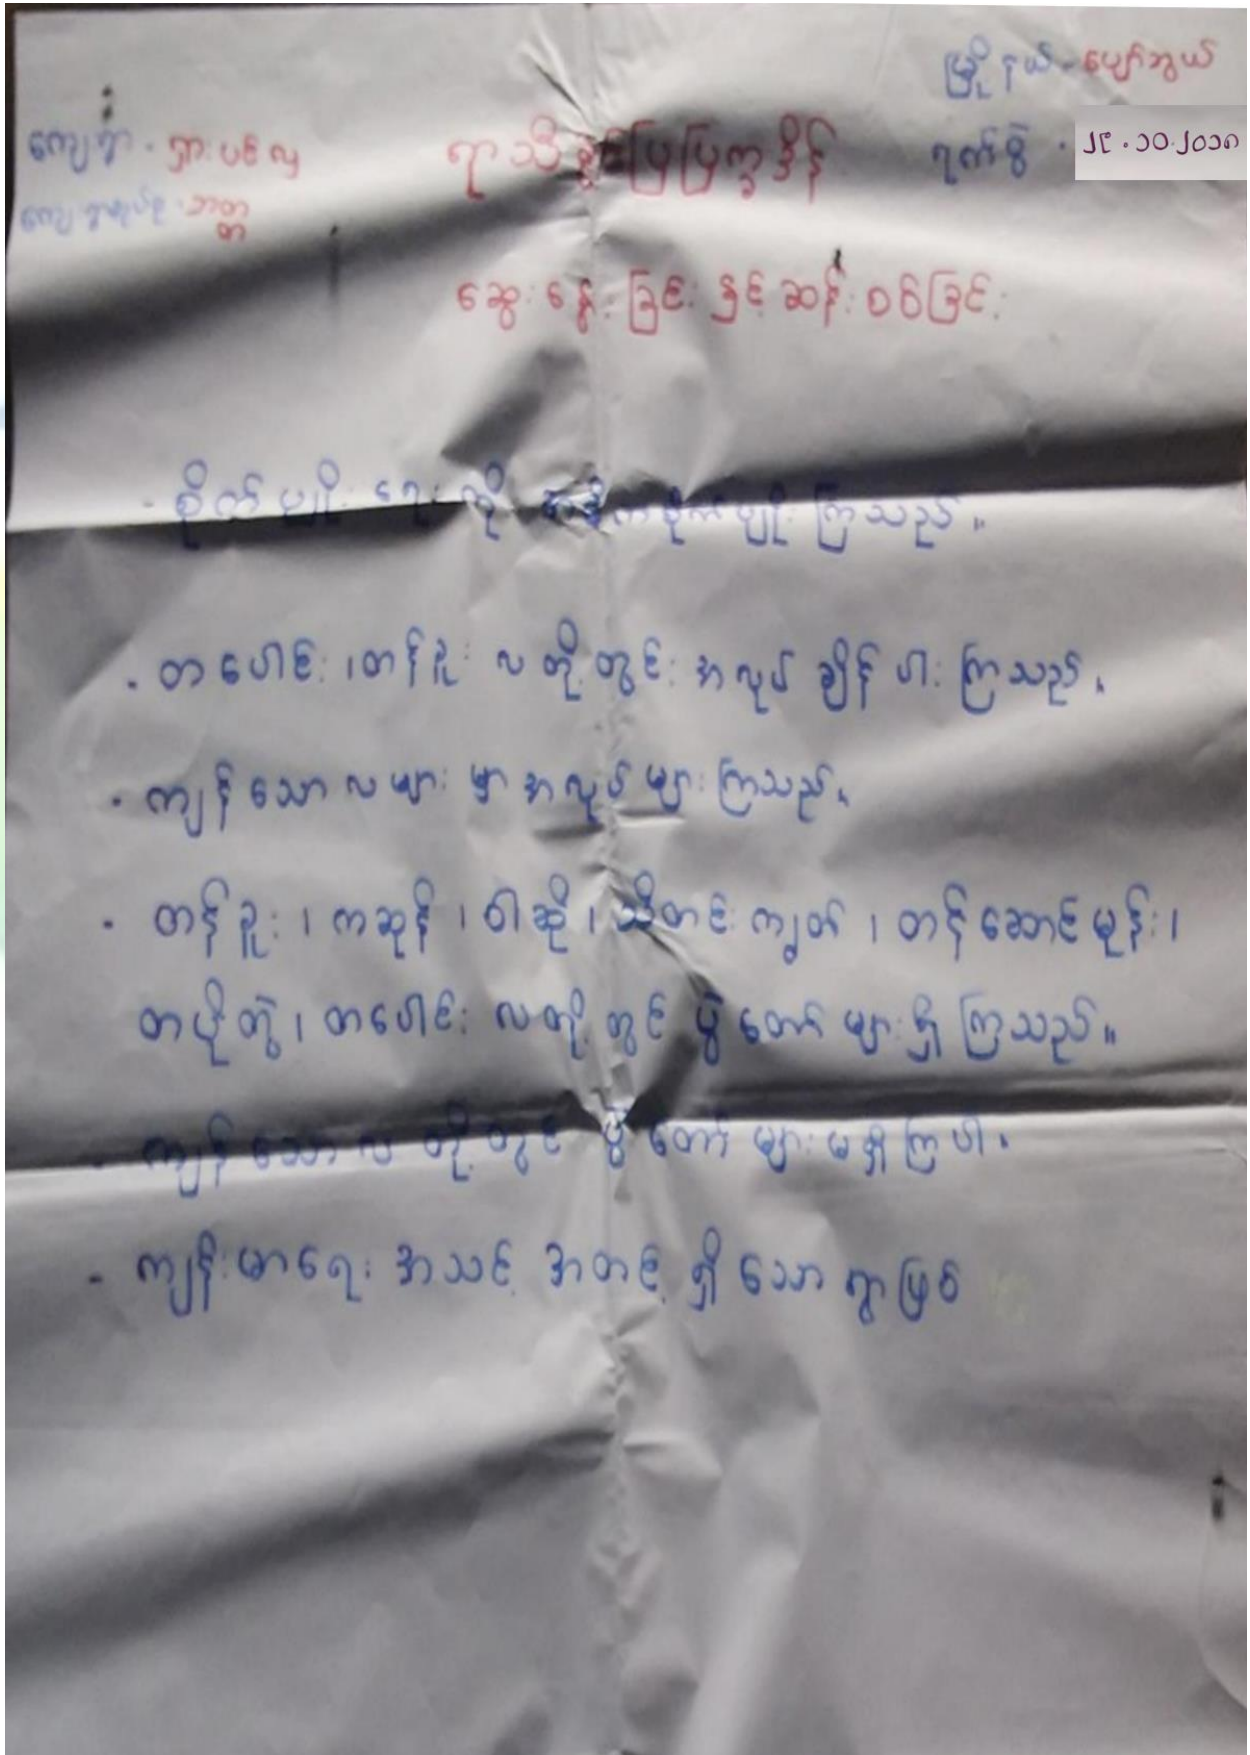 မြို့နယ် - ပျော်ဘွယ်
ကျေးရွာ - ရှားပင်လှ
ရာသီခွင်ပြပြက္ခဒိန်
ရက်စွဲ - ၂၄.၁၀.၂၀၁၈
ကျေးရွာအုပ်စု -
ဆွေးနွေးခြင်းနှင့်ဆန်းစစ်ခြင်း
- စိုက်ပျိုးရေးကို စိုက်ပျိုးကြသည်။
- တပေါင်း၊ တန်ခူးလတို့တွင်း အလုပ်ချိန်ပါးကြသည်။
- ကျန်သောလများမှာ အလုပ်များကြသည်။
- တန်ခူး၊ ကဆုန်၊ ဝါဆို၊ သီတင်းကျွတ်၊ တန်ဆောင်မုန်း၊
တပို့တွဲ၊ တပေါင်း လတို့တွင် ပွဲတော်များရှိကြသည်။
- ကျန်သောလတို့တွင် ပွဲတော်များမရှိကြပါ။
- ကျန်းမာရေးအသင့်အတင့်ရှိသောရွာဖြစ်